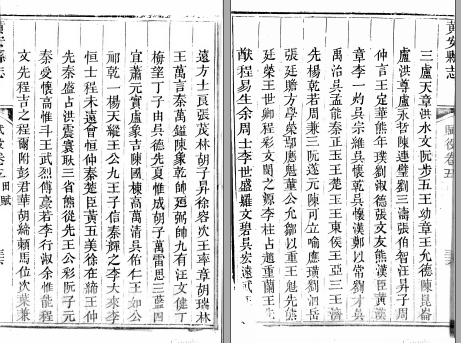 黃安縣志
賦役卷五
三盧天章洪水文阮步五王幼章王允德陳崑崙
盧洪尊盧永哲陳連璧劉三濤張伯智汪昇子周
仲言王定華熊年璞劉淑德張文友熊漢臣黃漢
章李一灼吳宗維吳懷乾吳懷漢鄭以常劉才吳
禹治吳孟能秦正玉王楚王王東侯王亞三王濟
先楊乾若周兼三阮遂元陳可立喻應璜劉泗岳
張廷贍方學榮鄒應魁董公允鄒以重王魁先熊
廷榮王世卿程彩文閔之源李柱占趙重蘭王生
猷程易生余周士李世盛羅文碧吳安遠武王
遠方士貢張茂林胡子昇徐容次王率章胡瑞林
王萬言秦萬鎰陳象乾帥廼弼帥九有汪文健丁
梅望丁子由吳德先夏惟成胡子萬雷恩三藍四
宜蕭元實盧象吉陳國棟高萬清吳佑仁王如公
祁乾一楊天縱王公九王子信秦輝之李大來李
恒士程未遠會恒仲秦楚臣黃五美徐在締王仲
先秦盛占洪震寰耿三省熊從先王公彩阮子元
秦受懷高惟斗王武烈傅若李行淑余惟能程
文先程吉之程爾附彭君華胡綺馬位次葉兼
縣志
田賦